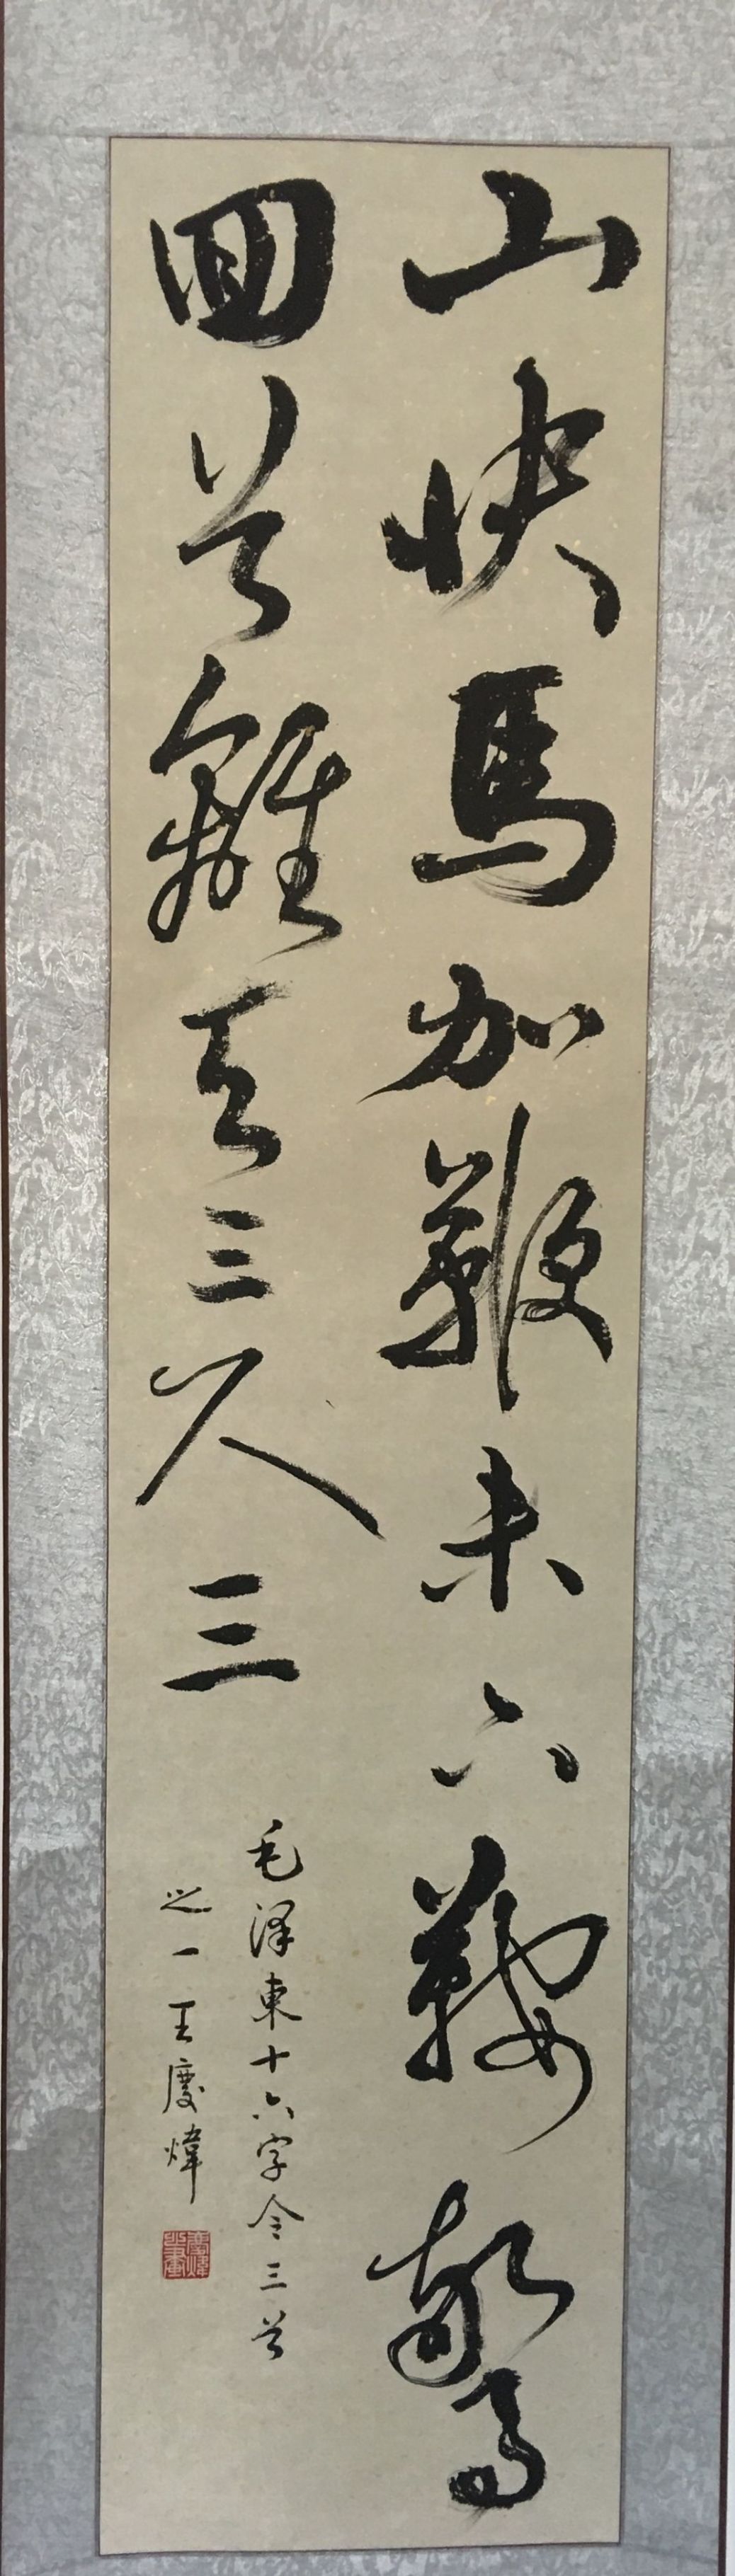 山快馬加鞭未下鞍驚
回首離天三尺三
毛澤東十六字令三首
之一王慶煒